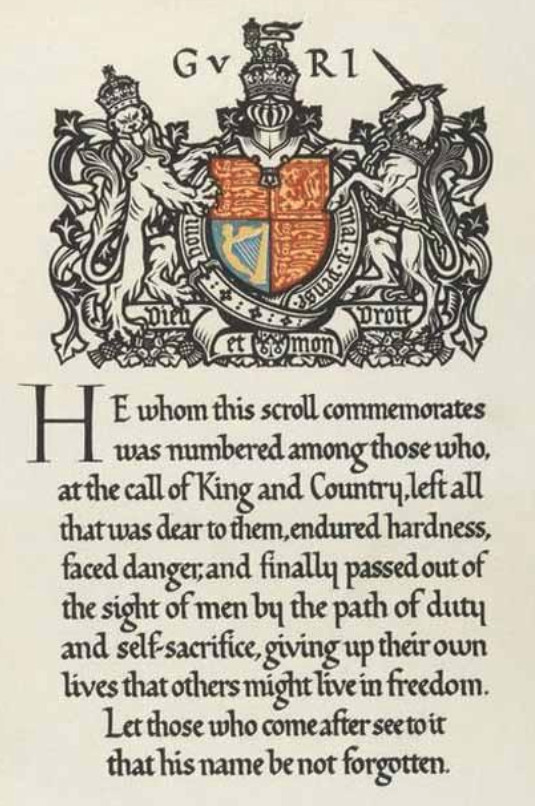 GV RI
honi mal·y·pense
Dieu Droit
et mon
HE whom this scroll commemorates
was numbered among those who,
at the call of King and Country, left all
that was dear to them, endured hardness,
faced danger, and finally passed out of
the sight of men by the path of duty
and self-sacrifice, giving up their own
lives that others might live in freedom.
Let those who come after see to it
that his name be not forgotten.